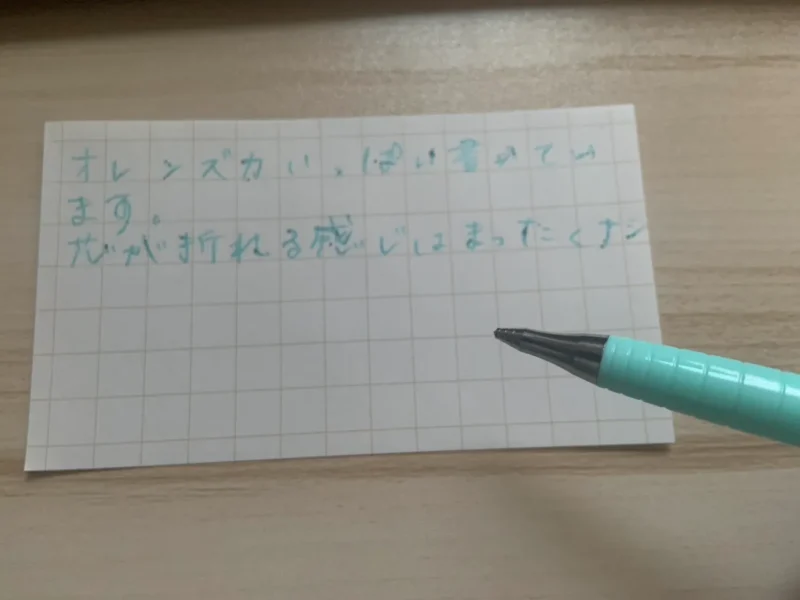 オレンズカいっぱい書かてい
ます。
だが折れる感じはまったくナシ